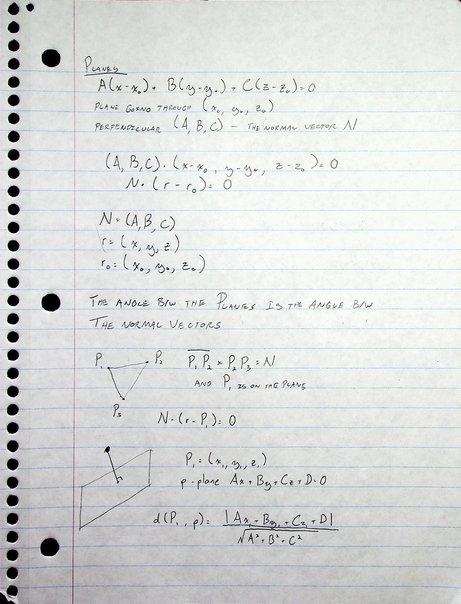 PLANES
A(x-x₀) + B(y-y₀) + C(z-z₀) = 0
PLANE GOING THROUGH (x₀, y₀, z₀)
PERPENDICULAR (A, B, C) - THE NORMAL VECTOR N
(A, B, C) · (x-x₀, y-y₀, z-z₀) = 0
N · (r - r₀) = 0
N = (A, B, C)
r = (x, y, z)
r₀ = (x₀, y₀, z₀)
THE ANGLE B/W THE PLANES IS THE ANGLE B/W
THE NORMAL VECTORS
P₁ P₂ P₁P₂ × P₂P₃ = N
AND P₁ IS ON THE PLANE
P₃
N · (r - P₁) = 0
P₁ = (x₁, y₁, z₁)
p - plane Ax + By + Cz + D = 0
d(P₁, p) = |Ax₁ + By₁ + Cz₁ + D|
√A² + B² + C²